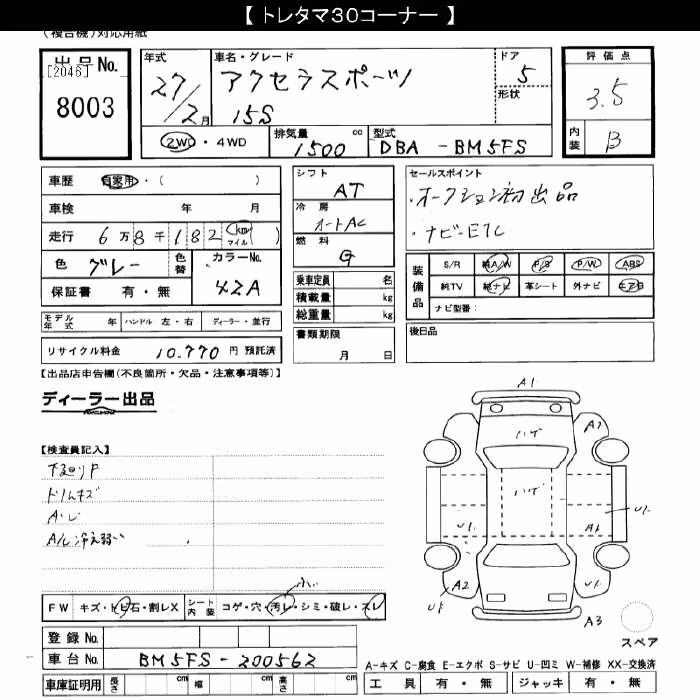 【 トレタマ30コーナー 】
(複合機)対応用紙
出品No.
[2046]
8003
年式
27/2月
車名・グレード
アクセラスポーツ
15S
ドア
5
形状
評価点
3.5
内装
B
2WD・4WD
排気量 1500 cc
型式 DBA-BM5FS
車歴 自家用・( )
車検 年 月
走行 6万8千182 (km マイル)( )
色 グレー
色替
カラーNo.
42A
保証書 有・無
シフト
AT
冷房
オートAC
燃料
G
乗車定員 名
積載量 kg
総重量 kg
書類期限
月 日
セールスポイント
・オークション初出品
・ナビ-ETC
装備品
S/R 純A/W P/S P/W ABS
純TV 純ナビ 革シート 外ナビ エアB
ナビ型番:
後日品
モデル年式 年 ハンドル 左・右 ディーラー・並行
リサイクル料金 10,770 円 預託済
【出品店申告欄(不良箇所・欠品・注意事項等)】
ディーラー出品
【検査員記入】
下廻りP
ドリムキズ
A/C冷え弱い
A1
A1
ハゲ
ハゲ
U1
U1
A1
A2
U1
U1
A3
スペア
FW キズ・トビ石・割レX
シート内装 コゲ・穴・汚レ・シミ・破レ・スレ
登録No.
車台No. BM5FS-200562
車庫証明用 長さ cm 幅 cm 高さ cm
A-キズ C-腐食 E-エクボ S-サビ U-凹ミ W-補修 XX-交換済
工具 有・無 ジャッキ 有・無